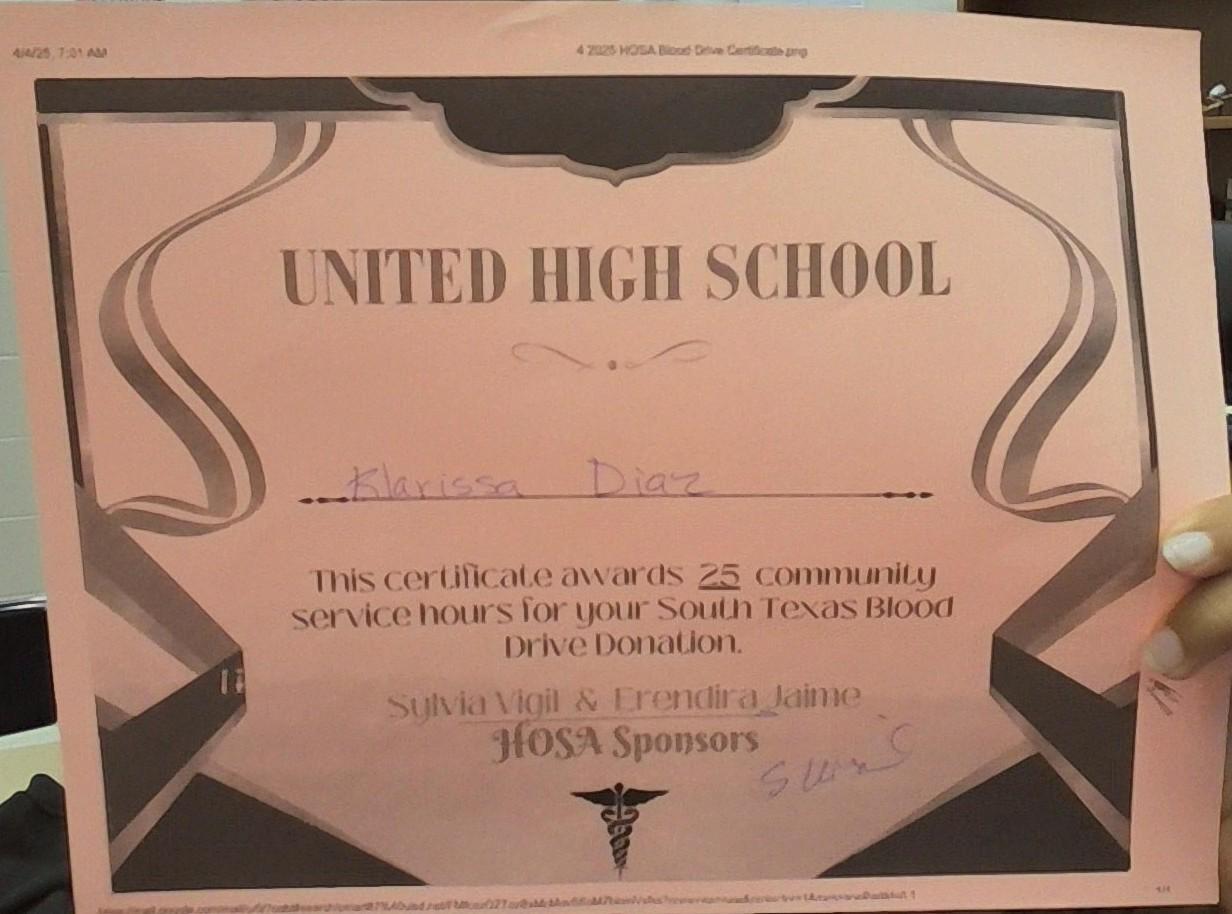 4/4/25, 7:01 AM
4 2025 HOSA Blood Drive Certificate.png
UNITED HIGH SCHOOL
Klarissa Diaz
This certificate awards 25 community
service hours for your South Texas Blood
Drive Donation.
Sylvia Vigil & Erendira Jaime
HOSA Sponsors
1/1